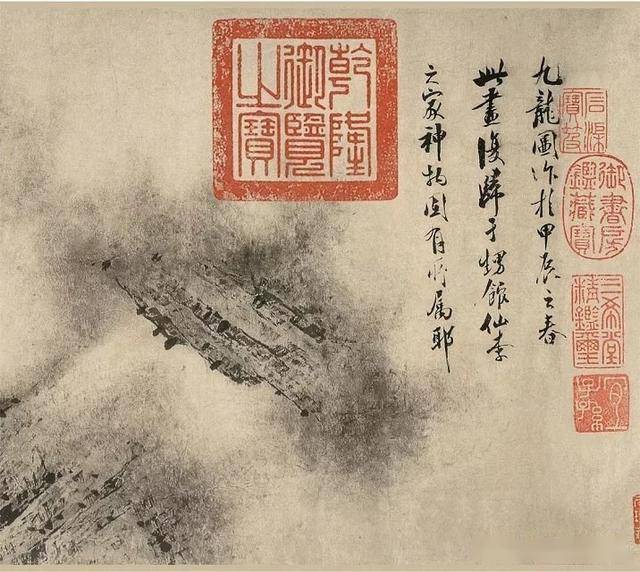 石渠
寶笈
御書房
鑑藏寶
三希堂
精鑑璽
宜
子孫
九龍圖作於甲辰之春
此畫復歸于甥館仙李
之家神物固有所屬耶
乾隆
御覽
之寶